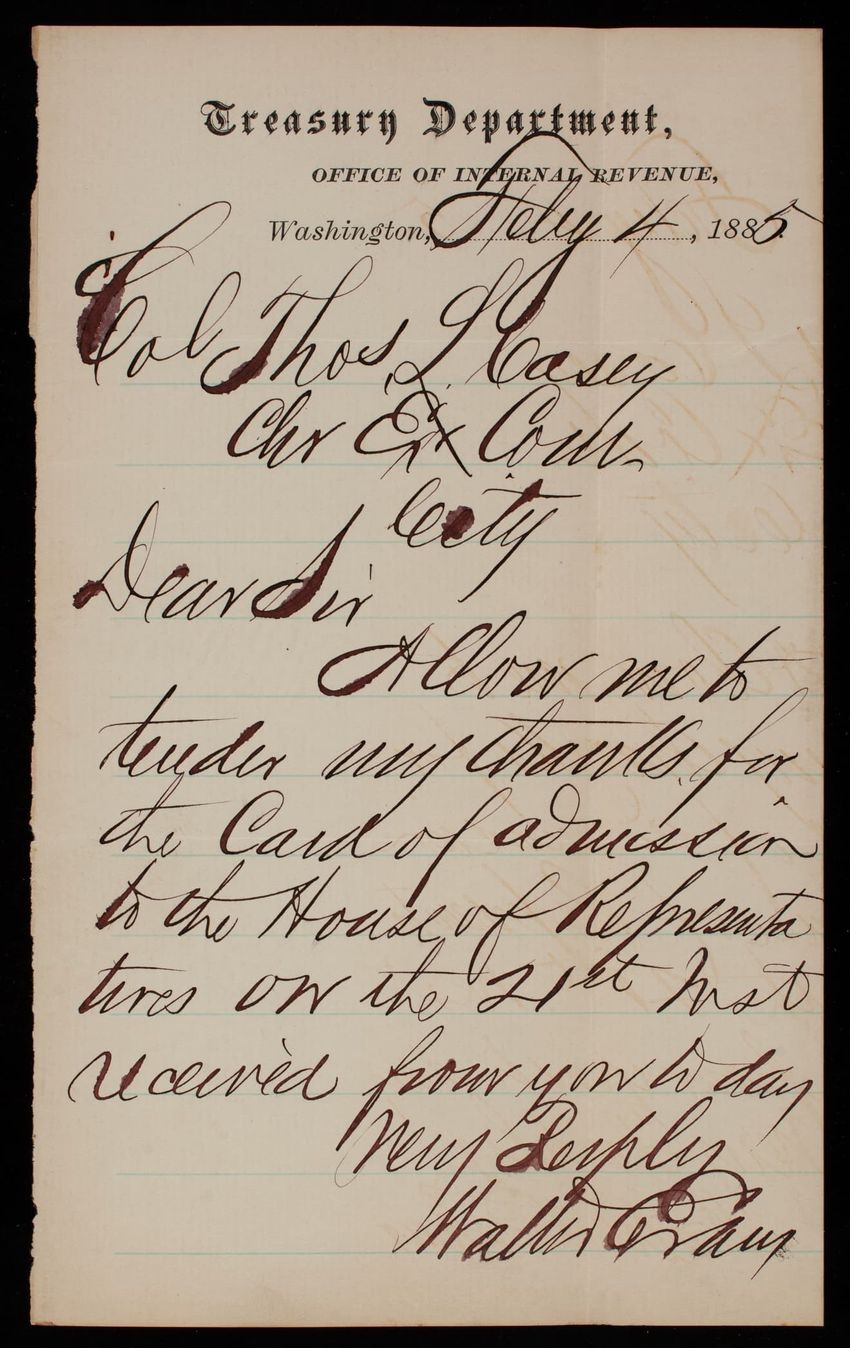 Treasury Department,
OFFICE OF INTERNAL REVENUE,
Washington, Feby 4, 1885.
Col Thos. L. Casey
Chr Ex Com
City
Dear Sir
Allow me to
tender my thanks for
the Card of admission
to the House of Representa
tives on the 21st Inst
received from you to day
Very Respfly
Walter